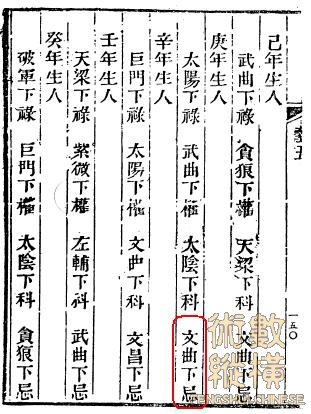 卷五
一五〇
己年生人
武曲下祿 貪狼下權 天梁下科 文曲下忌
庚年生人
太陽下祿 武曲下權 太陰下科 文曲下忌
辛年生人
巨門下祿 太陽下權 文曲下科 文昌下忌
壬年生人
天梁下祿 紫微下權 左輔下科 武曲下忌
癸年生人
破軍下祿 巨門下權 太陰下科 貪狼下忌
術數
縱橫